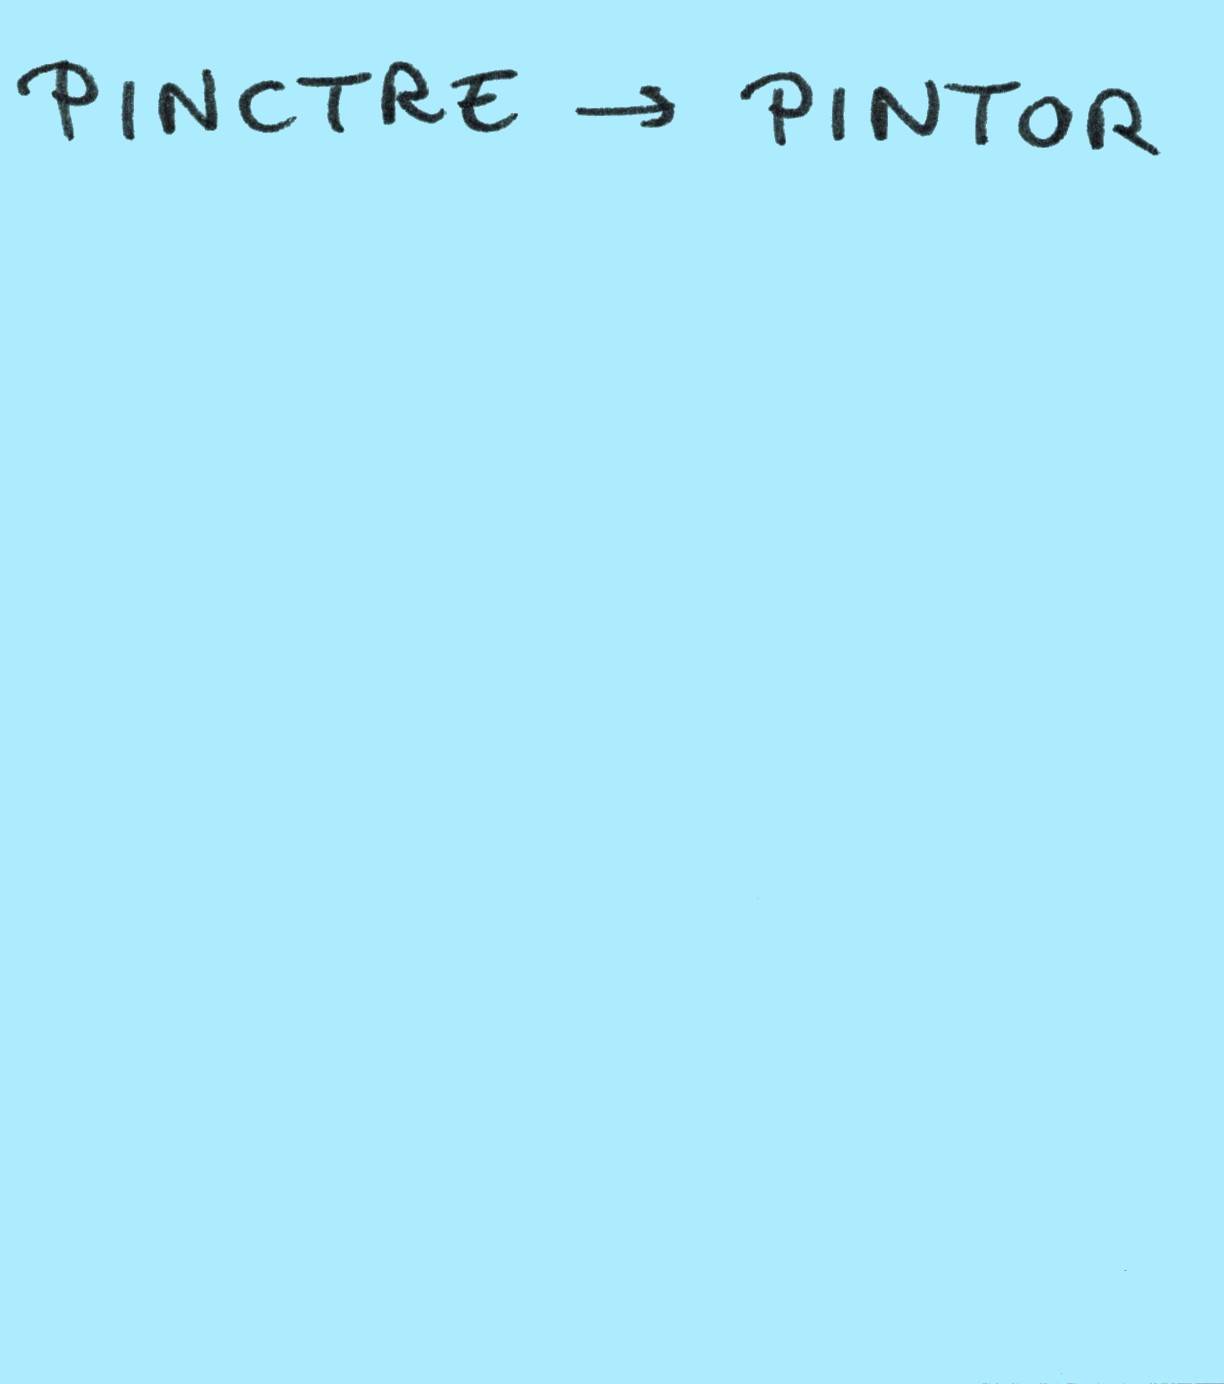 PINCTRE → PINTOR